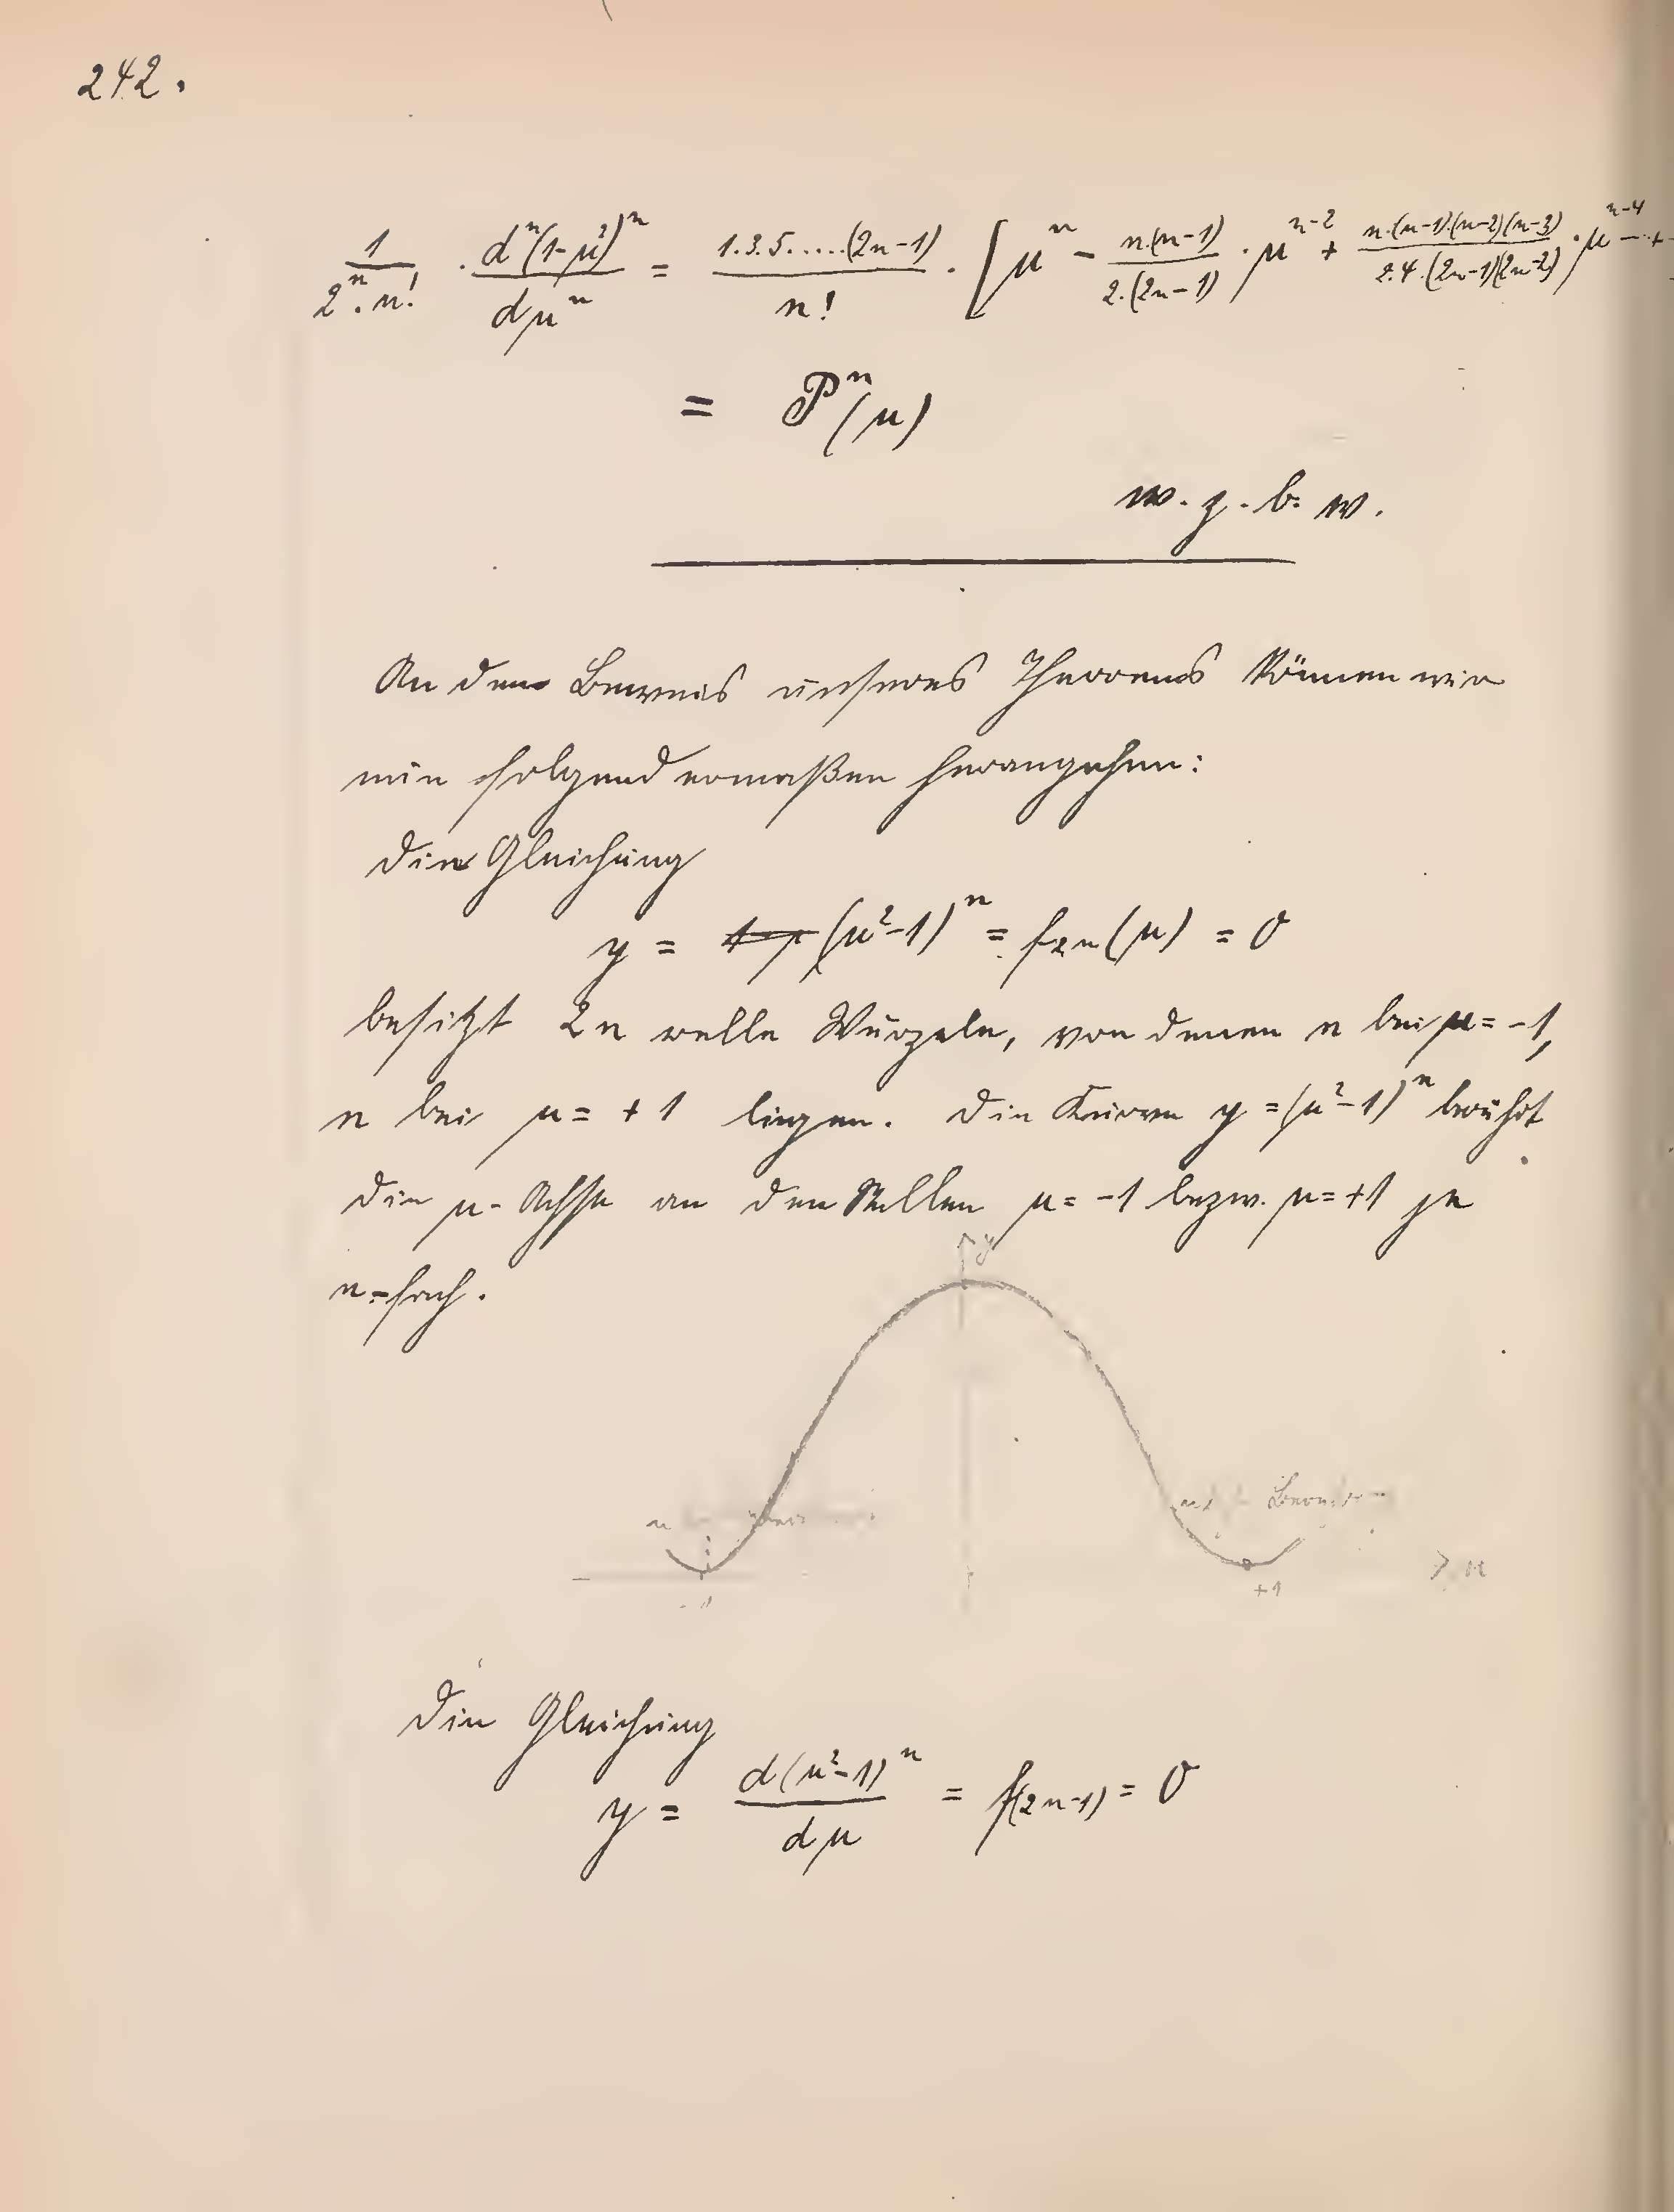 242.
1/(2^n . n!) . d^n(1-μ²)^n / dμ^n = 1.3.5.....(2n-1) / n! . [μ^n - n.(n-1) / 2.(2n-1) . μ^(n-2) + n.(n-1).(n-2)(n-3) / 2.4.(2n-1)(2n-2) . μ^(n-4) - + -
= P^n(μ)
w. z. b. w.
An den Beweis unseres Theorems können wir
nun folgendermaßen herangehen:
Die Gleichung
y = (μ²-1)^n = f_2n(μ) = 0
besitzt 2n reelle Wurzeln, von denen n bei μ = -1,
n bei μ = + 1 liegen. Die Kurve y = (μ²-1)^n berührt
die μ-Achse an den Stellen μ = -1 bezw. μ = +1 je
n=fach.
y
n
μ
+1
Die Gleichung
y = d(μ²-1)^n / dμ = f(2n-1) = 0